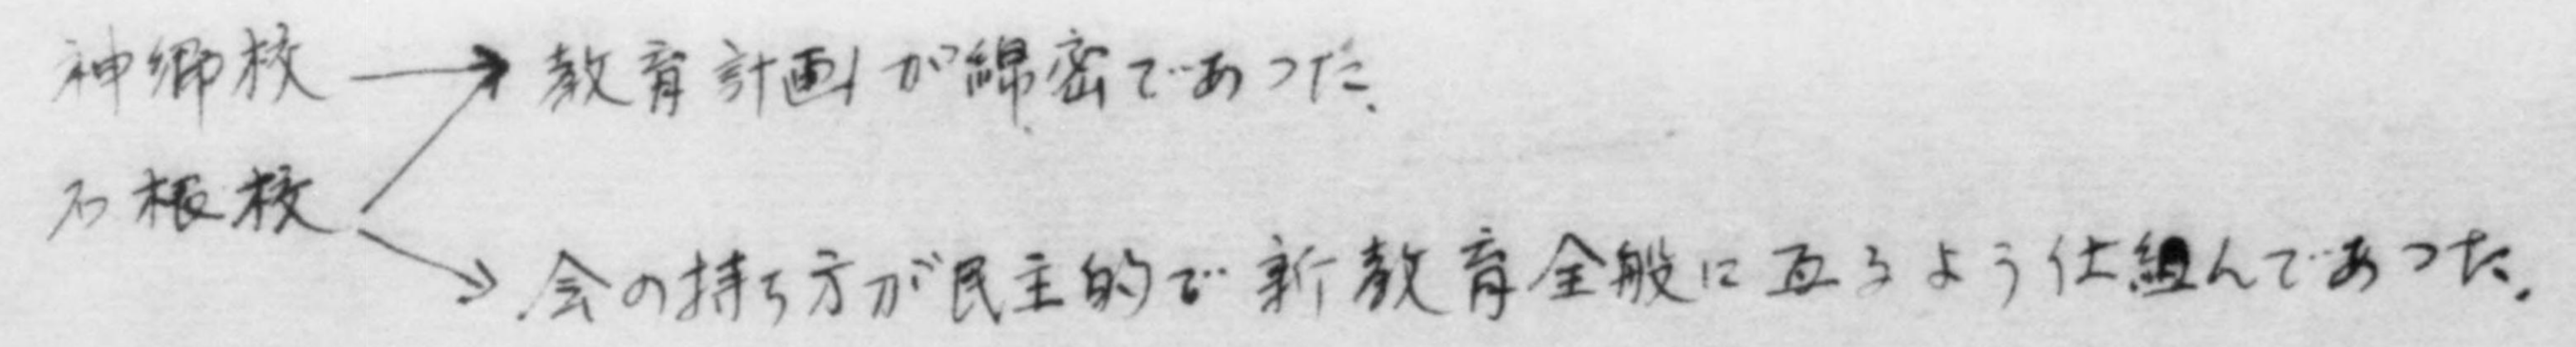 神郷校 → 教育計画が綿密であつた、
石根校
会の持ち方が民主的で新教育全般に亙るよう仕組んであつた。